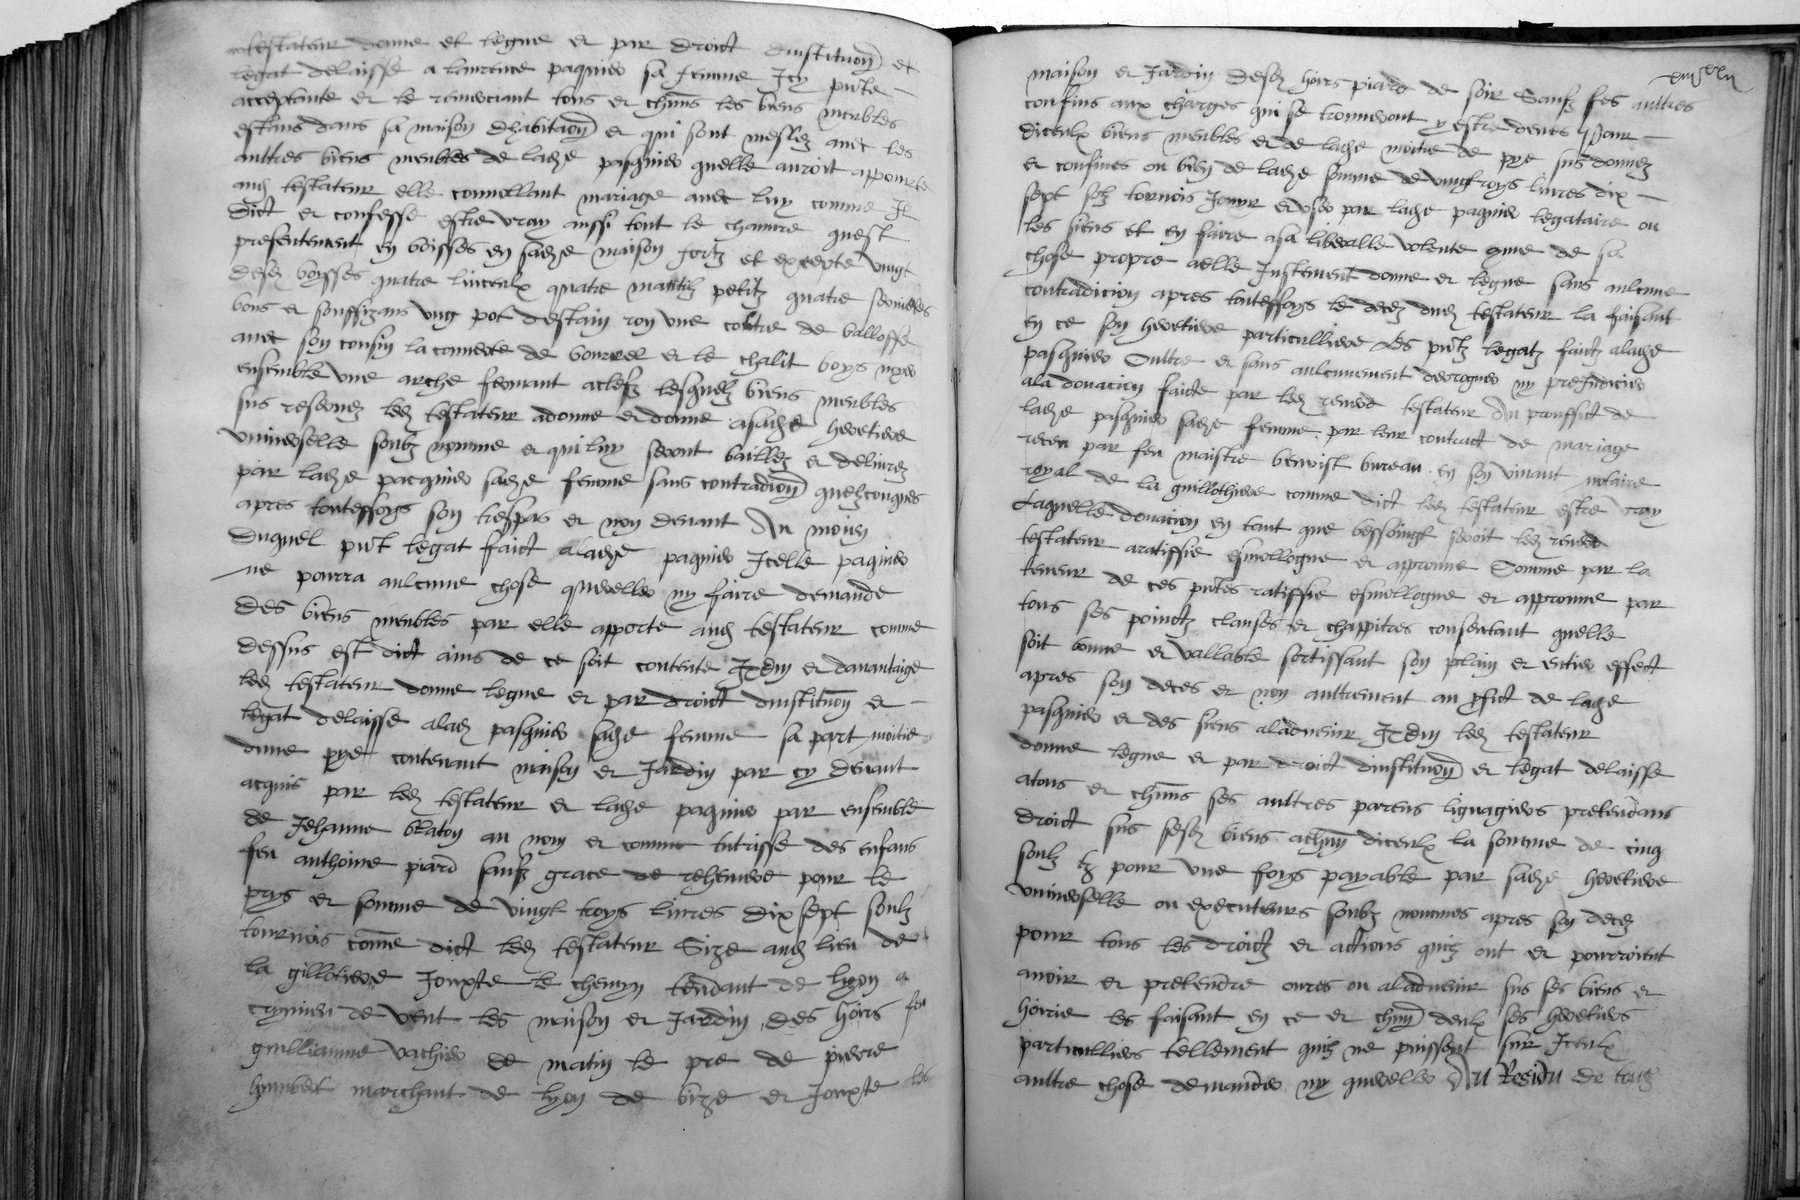 testateur donne et legue et par droict dinstitution et
legat delaisse a laurence paquier sa femme Icy pnte
acceptante et le remerciant tous et chuns les biens meubles
estans dans sa maison dhabitation et qui sont meslez avec les
aultres biens meubles de ladte pasquier quelle auroit apporte
aud testateur elle connollant mariage avec luy comme Il
dict et confesse estre vray aussi tout le chanvre quest
presentement en boisses en sadte maison fortz et excepte vingt
desd boysses quatre linceulx quatre mantilz petitz quatre serviettes
bons et souffizans ung pot destain roy une coultre de balloffe
avec son cousin la converte de bourre et le chalit boys noyer
ensemble une arche fermant aclefz lesquelz biens meubles
sus reservez led testateur adonne et donne asadte heretiere
universelle soubz nommee et qui luy seront baillez et delivrez
par ladte pacquier sadte femme sans contradiction quelzconques
apres touteffoys son trespas et non devant Au moien
duquel pnt legat faict aladte paquier Icelle paquier
ne pourra aulcune chose quereller ny faire demande
des biens meubles par elle apporte aud testateur comme
dessus est dict ains de ce soit contente Itdm et davantaige
led testateur donne legue et par droict dinstitution et
legat delaisse alad pasquier sadte femme sa part moitie
dune pye contenant maison et Jardin par cy devant
acquis par led testateur et ladte paquier par ensemble
de Jehanne Raton au nom et comme tutrisse des enfans
feu anthoine piard saufz grace de rehemere pour le
prys et somme de vingt troys livres dix sept soulz
tournois comme dict led testateur Size aud lieu de
la gillotiere Jouxte le chemyn tendant de lyon a
crymieu de vent les maison et Jardin des hoirs feu
guilliaume vachier de matin le pre de pierre
humbert marchant de lyon de bize et Jouxte les
maison et Jardin desd hoirs piard de soir Saufz ses aultres
confins aux charges qui se trouveront y estre deues Pour
diceulx biens meubles et de ladte moitie de pye sus donnez
et confines ou bien de ladte somme de vingt troys livres dix
sept solz tornois Jouyr et user par ladte paquier legataire ou
les siens et en faire asa liberalle volente come de sa
chose propre aelle Justement donne et legue sans aulcune
contradicion apres touteffoys le decez dud testateur la faisant
en ce son heretiere particulliere Les pntz legatz faictz aladte
pasquier Oultre et sans aulcunement derroguer ny prejudicier
ala donacion faicte par led testateur Au prouffict de
ladte pasquier sadte femme par leur contract de mariage
receu par feu maistre benoist bureau en son vivant notaire
royal de la guillothiere comme dict led testateur estre vray
Laquelle donacion en tant que bessoingt seroit led
testateur aratiffie esmollogue et approuve Comme par la
teneur de ces pntes ratiffie esmollogue et approuve par
tous ses poinctz clauses et chappitres consentant quelle
soit bonne et vallable sortissant son plain et entier effect
apres son deces et non aultrement au pffict de ladte
pasquier et des siens aladvenir Itdm led testateur
donne legue et par droict dinstitution et legat delaisse
atous et chuns ses aultres parens lignagiers pretendans
droict sus sesd biens achun diceulx la somme de cinq
soulz tz pour une foys payable par sadte heretiere
universelle ou executeurs soubz nommes apres son decez
pour tous les droictz et actions quilz ont et pourroient
avoir et pretendre ores ou aladvenir sus ses biens et
hoirie les faisant en ce et chun deulx ses heretiers
particulliers tellement quilz ne puissent sur Iceulx
aultre chose demander ny quereller Au Residu de tous